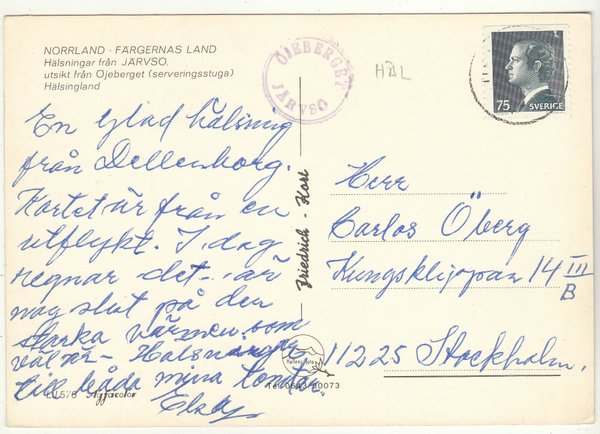 NORRLAND - FÄRGERNAS LAND
Hälsningar från JÄRVSO,
utsikt från Öjeberget (serveringsstuga)
Hälsingland
ÖJEBERGET
JÄRVSÖ
HÄL
75 SVERIGE
En glad hälsning
från Dellenborg.
Kortet är från en
utflykt. I dag
regnar det - är
nog slut på den
starka värmen som
väl är - Hälsningar
till båda mina
Elsa
Friedrich - Kort
Herr
Carlos Öberg
Kungsklippan 14 III
B
11225 Stockholm.
576 Agfacolor